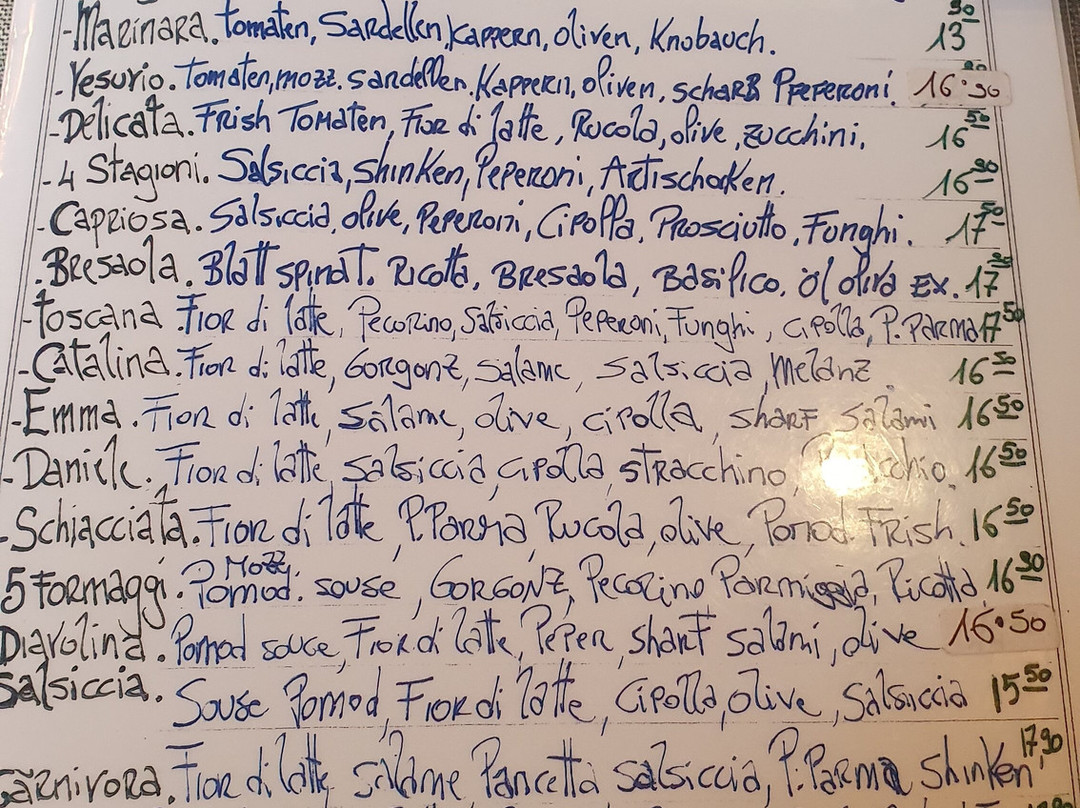 -Marinara. tomaten, Sardellen, Kappern, oliven, Knobauch. 13 90
Vesuvio. Tomaten, mozz. sardellen. Kappern, oliven, scharß Pfeperoni. 16.90
-Delicata. Frish Tomaten, Fior di latte, Rucola, olive, zucchini. 16 50
-4 Stagioni. Salsiccia, Shinken, Peperoni, Artischocken. 16 90
-Capriosa. Salsiccia, olive, Peperoni, Cipolla, Prosciutto, Funghi. 17 50
.Bresaola. Blatt spinat. Ricotta, Bresaola, Basilico. öl oliva Ex. 17
-Toscana. Fior di latte, Pecorino, Salsiccia, Peperoni, Funghi, cipolla, P. Parma 17 50
-Catalina. Fior di latte, Gorgonz, salame, salsiccia, Melanz. 16 50
-Emma. Fior di latte, salame, olive, cipolla, sharf salami 16 50
-Daniele. Fior di latte, salsiccia, cipolla, stracchino, 16 50
-Schiacciata. Fior di latte, P.Parma, Rucola, olive, Pomod Frish. 16 50
5 Formaggi. Mozz. Pomod. souse, Gorgonz, Pecorino Parmiggia, Ricotta 16 90
Diavolina. Pomod souce, Fior di latte, Peper, sharf salami, olive 16.50
Salsiccia. Souse Pomod, Fior di latte, Cipolla, olive, Salsiccia 15 50
Carnivora. Fior di latte, salame Pancetta salsiccia, P. Parma, Shinken 17,90